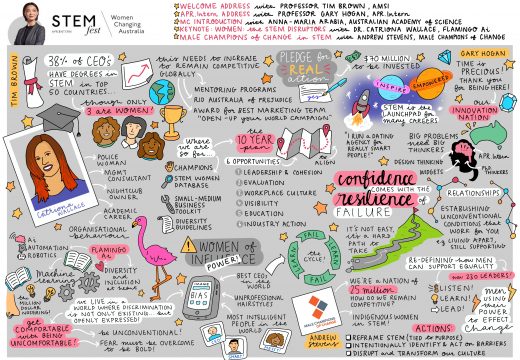 STEM
fest
Women
Changing
Australia
WELCOME ADDRESS with PROFESSOR TIM BROWN, AMSI
APR.INTERN ADDRESS with PROFESSOR GARY HOGAN, APR.INTERN
MC INTRODUCTION with ANNA-MARIA ARABIA, AUSTRALIAN ACADEMY OF SCIENCE
KEYNOTE: WOMEN: the STEM DISRUPTORS with DR. CATRIONA WALLACE, FLAMINGO AI
MALE CHAMPIONS OF CHANGE IN STEM with ANDREW STEVENS, MALE CHAMPIONS OF CHANGE
TIM BROWN
38% OF CEO's
HAVE DEGREES in
STEM in TOP
50 COUNTRIES...
though ONLY
3 are WOMEN!
this NEEDS to INCREASE
to REMAIN COMPETITIVE
GLOBALLY
MENTORING PROGRAMS
RID AUSTRALIA OF PREJUDICE
AWARD for BEST MARKETING TEAM
"OPEN-UP your WORLD CAMPAIGN"
PLEDGE for
REAL
action
$70 MILLION
to BE INVESTED
INSPIRE
EMPOWERED
STEM is the
LAUNCHPAD for
many CAREERS
GARY HOGAN
TIME is
PRECIOUS!
THANK you
for BEING HERE!
our
INNOVATION
NATION
"I RUN a DATING
AGENCY for
REALLY SMART
PEOPLE"
BIG PROBLEMS
NEED BIG
THINKERS
DESIGN THINKING
WIDGETS
APR.Intern
THINKERS
CATRIONA
WALLACE
POLICE
WOMAN
MGMT.
CONSULTANT
NIGHTCLUB
OWNER
ACADEMIC
CAREER
ORGANISATIONAL
behaviour
Where
we are
so far...
CHAMPIONS
STEM WOMEN
DATABASE
SMALL-MEDIUM
BUSINESS
TOOLKIT
DIVERSITY
GUIDELINES
the
10 YEAR
plan
to
ALIGN
6 OPPORTUNITIES
LEADERSHIP & COHESION
EVALUATION
WORKPLACE CULTURE
VISIBILITY
EDUCATION
INDUSTRY ACTION
confidence
COMES WITH THE
resilience of
FAILURE
IT'S NOT EASY,
it's a HARD
PATH to
TAKE
RELATIONSHIPS
ESTABLISHING
UNCONVENTIONAL
CONDITIONS that
WORK for YOU
eg LIVING APART,
STILL SUPPORTING
RE-DEFINING how MEN
CAN SUPPORT EQUALITY
AUTOMATION
ROBOTICS
FLAMINGO AI
Machine
learning
DIVERSITY
and
INCLUSION
at heart
the MILLION
DOLLAR
WEDDING!
get
COMFORTABLE
with BEING
UNCOMFORTABLE!
we LIVE in a
WORLD WHERE DISCRIMINATION
is NOT ONLY EXISTING... but
OPENLY EXPRESSED!
be UNCONVENTIONAL!
FEAR must be OVERCOME
to BE BOLD!
WOMEN of
INFLUENCE
POWER!
MALE
BIAS
LEARN
FAIL
LEARN
FAIL
the
CYCLE!
BEST CEO's
in the
WORLD
UNPROFESSIONAL
HAIRSTYLES
MOST INTELLIGENT
PEOPLE in the
WORLD
WE'RE a NATION of
25 million
HOW do WE REMAIN
COMPETITIVE?
INDIGENOUS WOMEN
in STEM!
ANDREW
Stevens
now 230 LEADERS!
LISTEN!
LEARN!
LEAD!
men
USING
their
POWER
to EFFECT
CHANGE
ACTIONS:
REFRAME STEM (TIED to PURPOSE)
INTENTIONALLY IDENTIFY & ACT on BARRIERS
DISRUPT and TRANSFORM our CULTURE